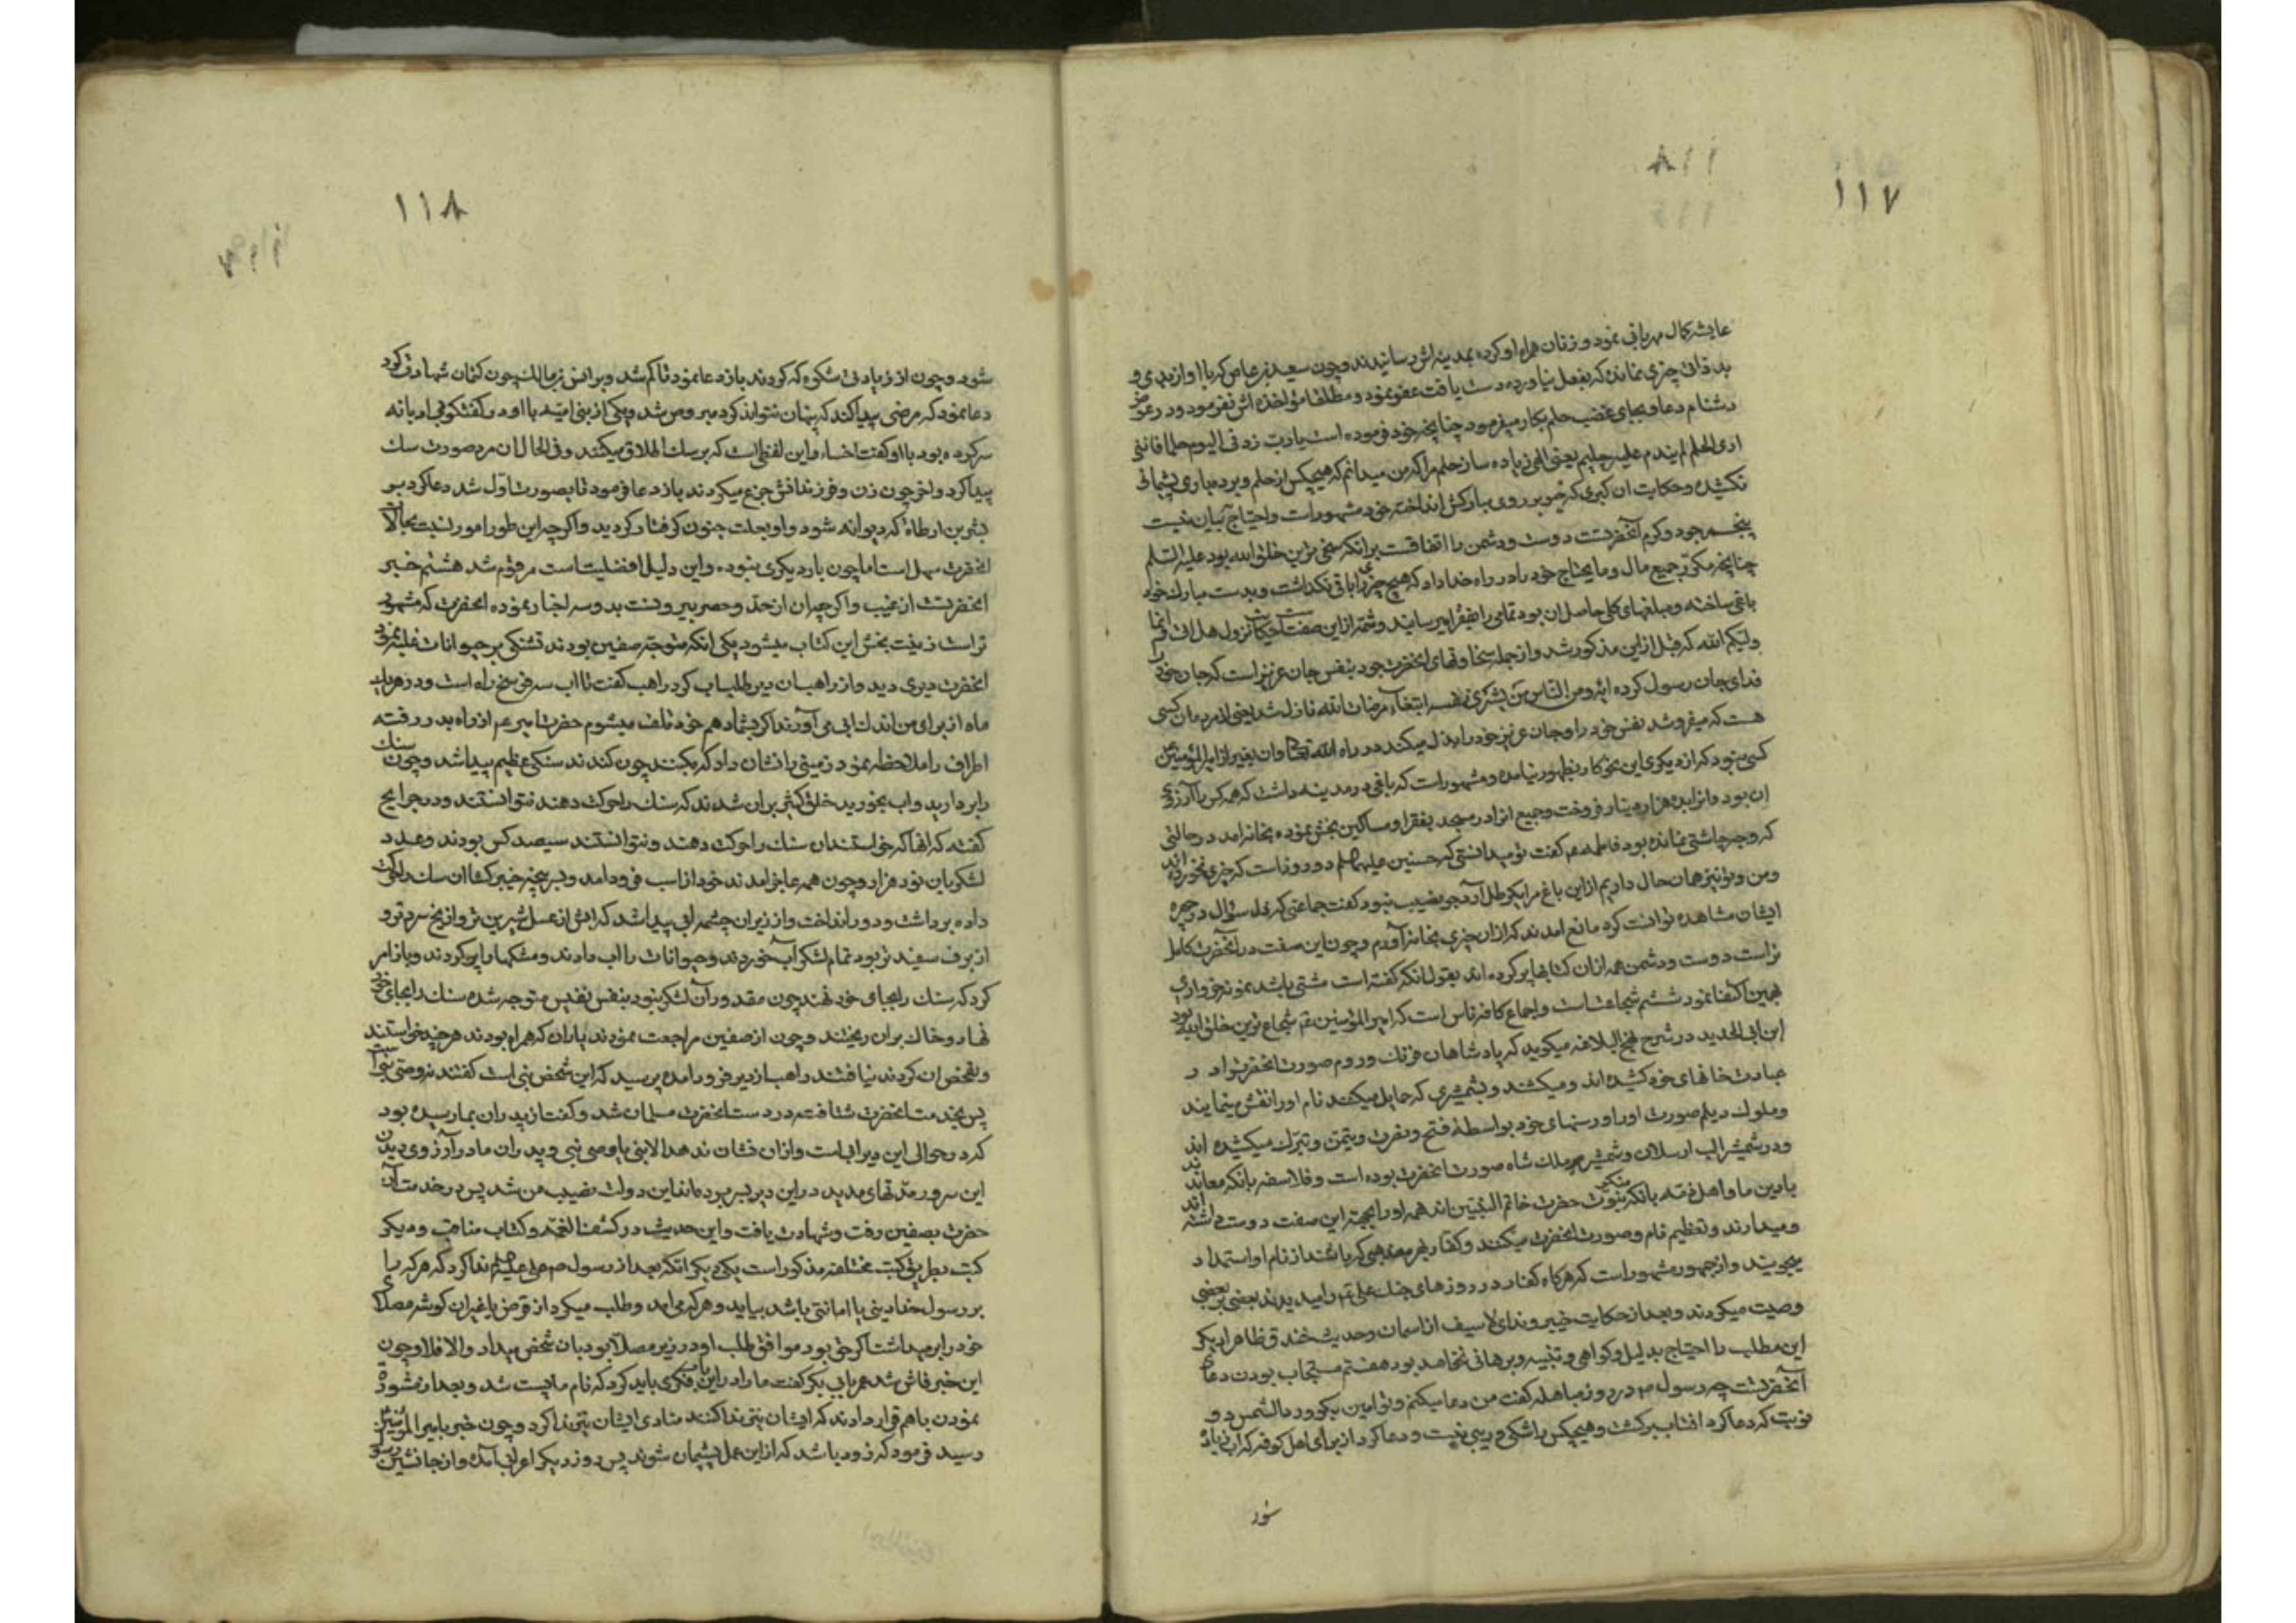 ١١٧
١١٨
عایشه کمال مهربانی نمود و زنان همراه او کرده بمدینه اش رسانیدند و چون سعید بن عاص که با او از بدی و
بدذاتی چیزی نمانده که بفعل نیاورده دست یافت عفو نمود و مطلقا مؤاخذه اش نفرمود و در عوض
دشنام دعا و بجای غضب حلم بکار میفرمود چنانچه خود فرموده است یا رب زدنی الیوم حلما فاننی
اری الحلم لم یندم علیه حلیم یعنی الهی زیاده ساز حلم مرا که من میدانم که هیچکس از حلم و بردباری پشیمانی
نکشیده و حکایت ان کبری که خیو بر روی مبارکش انداخته خود مشهورات و احتیاج بیان نیست
پنجم جود و کرم آنحضرتست دوست و دشمن را اتفاقست برانکه سخی ترین خلق الله بود علیه السلم
چنانچه مکرر جمیع مال و مایحتاج خود را در راه خدا داد که هیچ چیزی را باقی نگذاشت و بدست مبارک خود
باغی ساخته و مبلغهای کلی حاصل ان بود تمامی را بفقرا میرسانید و شمه از این صفت حکایت نزول هل اتی و انما
ولیکم الله که قبل از این مذکور شد و از جمله سخاوتهای انحضرت جود بنفس جان عزیز است که جان خود
فدای جان رسول کرده ایه و من الناس من یشری نفسه ابتغاء مرضات الله نازل شد یعنی از مردمان کسی
هست که میفروشد نفس خود را و جان عزیز خود را بذل میکند در راه الله تعالی و ان بغیر از امیر المؤمنین
کسی نبود که از دیگری این نحو کار بظهور نیامده و مشهورات که باغی در مدینه داشت که همه کس را آرزوی
ان بود و انرا بده هزار دینار فروخت و جمیع انرا در مسجد بفقرا و مساکین بخش نموده بخانه امد در حالتی
که وجه چاشتی نمانده بود فاطمه ع م گفت تو میدانستی که حسنین علیهما السلم دو روز است که چیزی نخورده اند
و من و تو نیز همان حال داریم از این باغ مرا یکرطل آرد جو نصیب نبود گفت جماعتی که ذل سؤال در چهره
ایشان مشاهده توانست کرد مانع امدند که ازان چیزی بخانه آورم و چون این صفت در آنحضرت کامل
تر است دوست و دشمن همه ازان کتابها پر کرده اند بقول انکه گفته است مشتی باشد نمونه خرواری
بهمین اکتفا نمود ششم شجاعت است و اجماع کافه ناس است که امیر المؤمنین ع م شجاع ترین خلق الله بود
ابن ابی الحدید در شرح نهج البلاغه میگوید که پادشاهان فرنگ و روم صورت انحضرت را در
عبادت خانهای خود کشیده اند و میکشند و بشمشیری که حمایل میکنند نام او را نقش مینمایند
و ملوک دیلم صورت او را در سنمای خود بواسطهٔ فتح و نصرت و تیمن و تبرک میکشیده اند
و در شمشیر الب ارسلان و شمشیر پسر ملک شاه صورت انحضرت بوده است و فلاسفه بانکه معاندند
با دین ما و اهل ذمه بانکه منکر نبوت حضرت خاتم النبیین اند همه او را بجهة این صفت دوست داشته اند
و میدارند و تعظیم نام و صورت انحضرت میکنند و کفار بهر مذهبی که باشند از نام او استمداد
میجویند و از جمهور مشهور است که هرگاه کفار در روزهای جنگ علی ع م را میدیدند بعضی بر بعضی
وصیت میکردند و بعد از حکایت خیبر و ندای لا سیف از اسمان و حدیث خندق ظاهرا دیگر
این مطلب را احتیاج بدلیل و گواهی و تنبیه و برهانی نخواهد بود هفتم مستجاب بودن دعای
آنحضرتست چه رسول ص م در روز مباهله گفت من دعا میکنم و تو امین بگو و رد الشمس دو
نوبت که دعا کرد افتاب برگشت و هیچکس را شکی و ریبی نیست و دعا کرد از برای اهل کوفه که اب زیاد
شود
١١٨
شود و چون از زیادتی شکوه که کردند باز دعا نمود تا کم شد و بر انس بن مالک چون کتمان شهادتی کرد
دعا نمود که مرضی پیدا کند که پنهان نتواند کرد مبروص شد و یکی از بنی امیه با او در گفتگو بی ادبانه
سر کرده بود با او گفت اخساء و این لفظی است که بر سک اطلاق میکنند و فی الحال ان مرد صورت سک
پیدا کرد و اخر چون زن و فرزندانش جزع میکردند باز دعا فرمود تا بصورت اول شد دعا کرد بر
بشر بن ارطاة که دیوانه شود و او بعلت جنون گرفتار گردید و اگر چه این طور امور نسبت بحالات
انحضرت سهل است اما چون با دیگری نبوده و این دلیل افضلیت است مرقوم شد هشتم خبر
انحضرتست از غیب و اگر چه ان از حد و حصر بیرونست بدو سه اخبار نموده انحضرت که مشهور
تر است زینت بخش این کتاب میشود یکی انکه متوجه صفین بودند تشنگی بر حیوانات غلبه نمود
انحضرت دیری دید و از راهبان دیر طلب اب کرد راهب گفت تا اب سه فرسخ راه است و در هر یک
ماه از برای من اندک ابی می آورند اگر بشما دهم خود تلف میشوم حضرت امیر ع م از راه بدر رفته
اطراف را ملاحظه نمود زمینی را نشان داد که بکنند چون کندند سنگی عظیم پیدا شد و چون سنک
را بردارید و اب بخورید خلق کثیر بران شدند که سنک را حرکت دهند نتوانستند و در جرایح
گفته که انها که خواستند ان سنک را حرکت دهند و نتوانستند سیصد کس بودند و عدد
لشکریان نود هزار و چون همه عاجز امدند خود از اسب فرود امد و بسر پنجه خیبر گشا ان سنک را حرکت
داده برداشت و دور انداخت و از زیر ان چشمه ابی پیدا شد که ابش از عسل شیرین تر و از یخ سردتر و
از برف سفیدتر بود تمام لشکر آب خوردند و حیوانات را اب دادند و مشکها را پر کردند و باز امر
کرد که سنک را بجای خود نهند چون مقدور آن لشکر نبود بنفس نفیس متوجه شده سنک را بجای خود
نهاد و خاک بران ریختند و چون از صفین مراجعت نمودند یاران که همراه بودند هر چند خواستند
و تفحص ان کردند نیافتند راهب از دیر فرود امده پرسید که این شخص نبی است گفتند نه وصی نبی است
پس بخدمت انحضرت شتافته در دست انحضرت مسلمان شد و گفت از پدران بما رسیده بود
که در حوالی این دیر ابی است و ازان نشان ندهد الا نبی یا وصی نبی و پدران ما در آرزوی دیدن
این سرور مدتهای مدید در این دیر بسر بردند اما این دولت نصیب من شد پس در خدمت آن
حضرت بصفین رفت و شهادت یافت و این حدیث در کشف الغمه و کتاب مناقب و دیگر
کتب بطریق کتب مختلفه مذکور است یکی دیگر انکه بعد از رسول ص م علی علیه السلم ندا کرد که هر که را
بر رسول خدا دینی یا امانتی باشد بیاید و هر که می امد و طلب میکرد از قرض یا غیر ان گوشه مصلای
خود را بر میداشت اگر حق بود موافق طلب او در زیر مصلا بود بان شخص میداد و الا فلا و چون
این خبر فاش شد عمر بابی بکر گفت ما را در این باب فکری باید کرد که نام ما پست شد و بعد از مشورة
نمودن با هم قرار دادند که ایشان نیز ندا کنند منادی ایشان نیز ندا کرد و چون خبر بامیر المؤمنین
رسید فرمود که زود باشد که از این عمل پشیمان شوند پس روز دیگر اعرابی آمده و از جانشین رسول